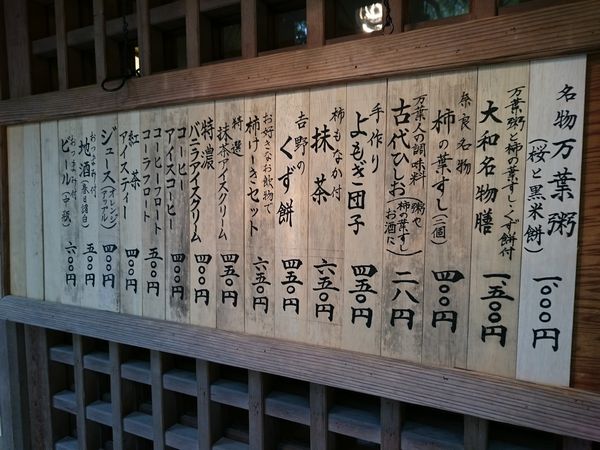 名物 万葉粥
(桜と黒米餅)
一、〇〇〇円
万葉粥と柿の葉すし・くず餅付
大和名物膳
一、五〇〇円
奈良名物
柿の葉すし(二個)
四〇〇円
万葉人の調味料
古代ひしお
二八〇円
手作り
よもぎ団子
四五〇円
柿もなか付
抹茶
六五〇円
吉野の
くず餅
四五〇円
お好きなお飲物で
柿けーきセット
六五〇円
特選
抹茶アイスクリーム
四五〇円
特濃
バニラアイスクリーム
四〇〇円
コーヒー
アイスコーヒー
四〇〇円
コーヒーフロート
コーラフロート
五〇〇円
紅茶
アイスティ
四〇〇円
ジュース(オレンジ アップル)
四〇〇円
おつまみ付
地酒(春日諸白)
五〇〇円
おつまみ付
ビール(中瓶)
六〇〇円